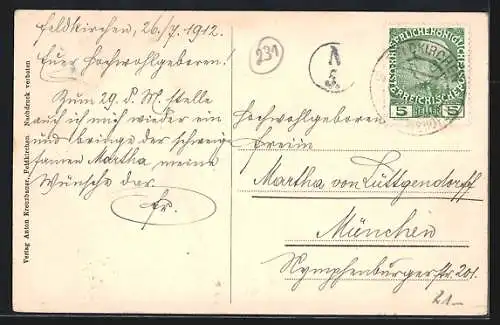 Feldkirchen, 26./7. 1912.
Euer Hochwohlgeboren!
Zum 29. d. M. stelle
auch ich mich wieder ein
und bringe der schweig-
samen Martha meine
Wünsche dar.
Fr.
231
A
5.
KAISERLICHE KÖNIGLICHE
ÖSTERREICHISCHE POST
5 HELLER 5
Hochwohlgeboren
Freiin
Martha von Lüttgendorff
München
Nymphenburgerstr. 201.
21-
Verlag Anton Kreuzbauer, Feldkirchen. Nachdruck verboten